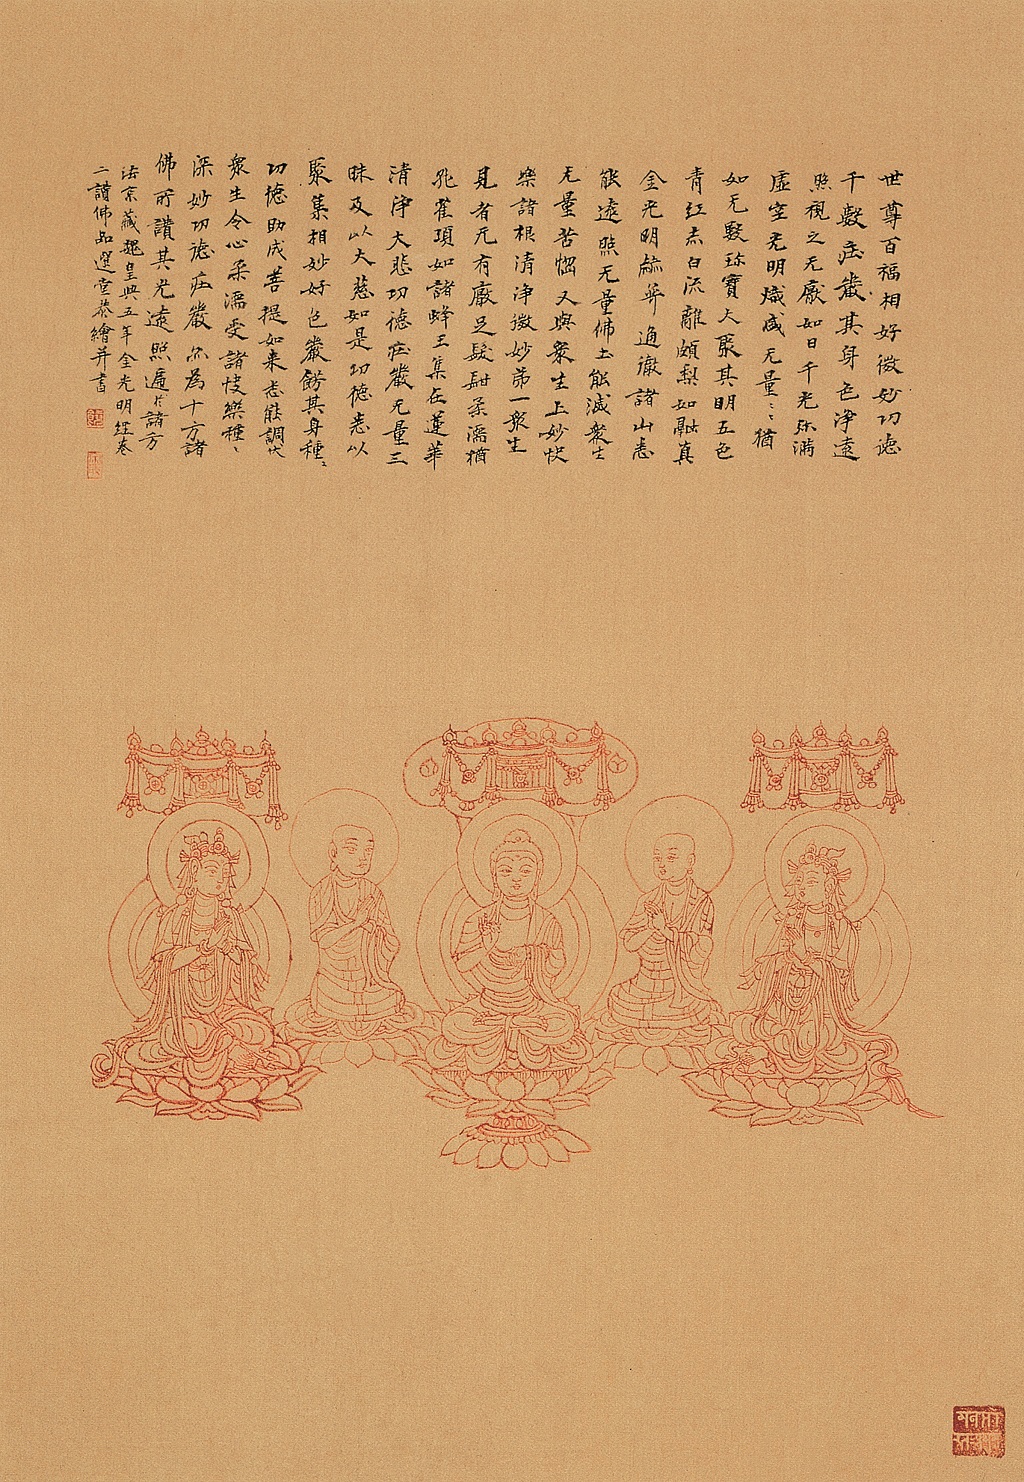 世尊百福相好微妙功德
千數庄嚴其身色淨遠
照視之无厭如日千光弥滿
虛空光明熾盛无量〻猶
如无數珎寶大聚其明五色
青紅赤白流離頗梨如融真
金光明赫弈通徹諸山悉
能遠照无量佛土能滅衆生
无量苦惱又與衆生上妙快
樂諸根清淨微妙第一衆生
見者无有厭足髮紺柔濡猶
孔雀項如諸蜂王集在蓮華
清淨大悲功德庄嚴无量三
昧及以大慈如是功德悉以
聚集相妙好色嚴飾其身種〻
功德助成菩提如来悉能調伏
衆生令心柔濡受諸快樂種〻
深妙功德庄嚴亦為十方諸
佛所讚其光遠照遍於諸方
法京藏魏皇興五年金光明經卷
二讚佛品選堂恭繪并書